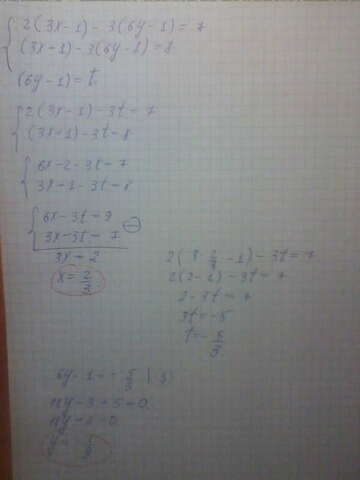 2(3x-1)-3(6y-1)=7
(3x-1)-3(6y-1)=8
(6y-1)=t
2(3x-1)-3t=7
(3x-1)-3t=8
6x-2-3t=7
3x-1-3t=8
6x-3t=9
3x-3t=7
3x=2
x=2/3
2(3·2/3-1)-3t=7
2(2-1)-3t=7
2-3t=7
3t=-5
t=-5/3
6y-1=-5/3 |·3